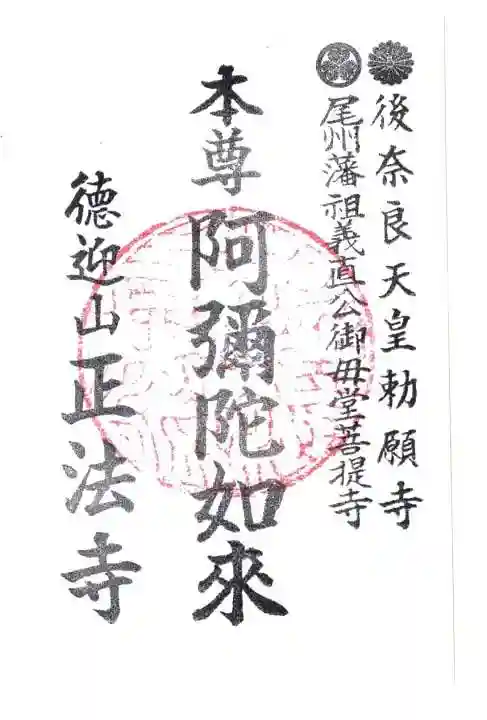 後奈良天皇勅願寺
尾州藩祖義直公御母堂菩提寺
本尊 阿彌陀如來
徳迎山正法寺